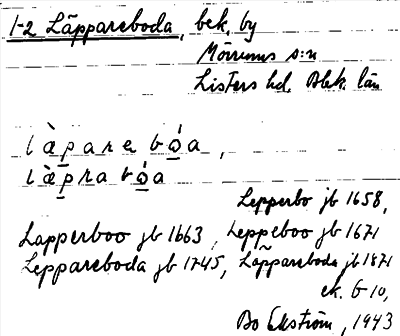 1-2 Läppareboda, bek. by
Mörrums s:n
Listers hd. Blek. län
l æ̀ p a r e b ó a ,
l æ̀ p r a b ó a
Lepperbo jb 1658,
Lapperboo jb 1663, Leppeboo jb 1671
Leppareboda jb 1745, Läppareboda jb 1871
ek. G 10,
Bo Ekström, 1943